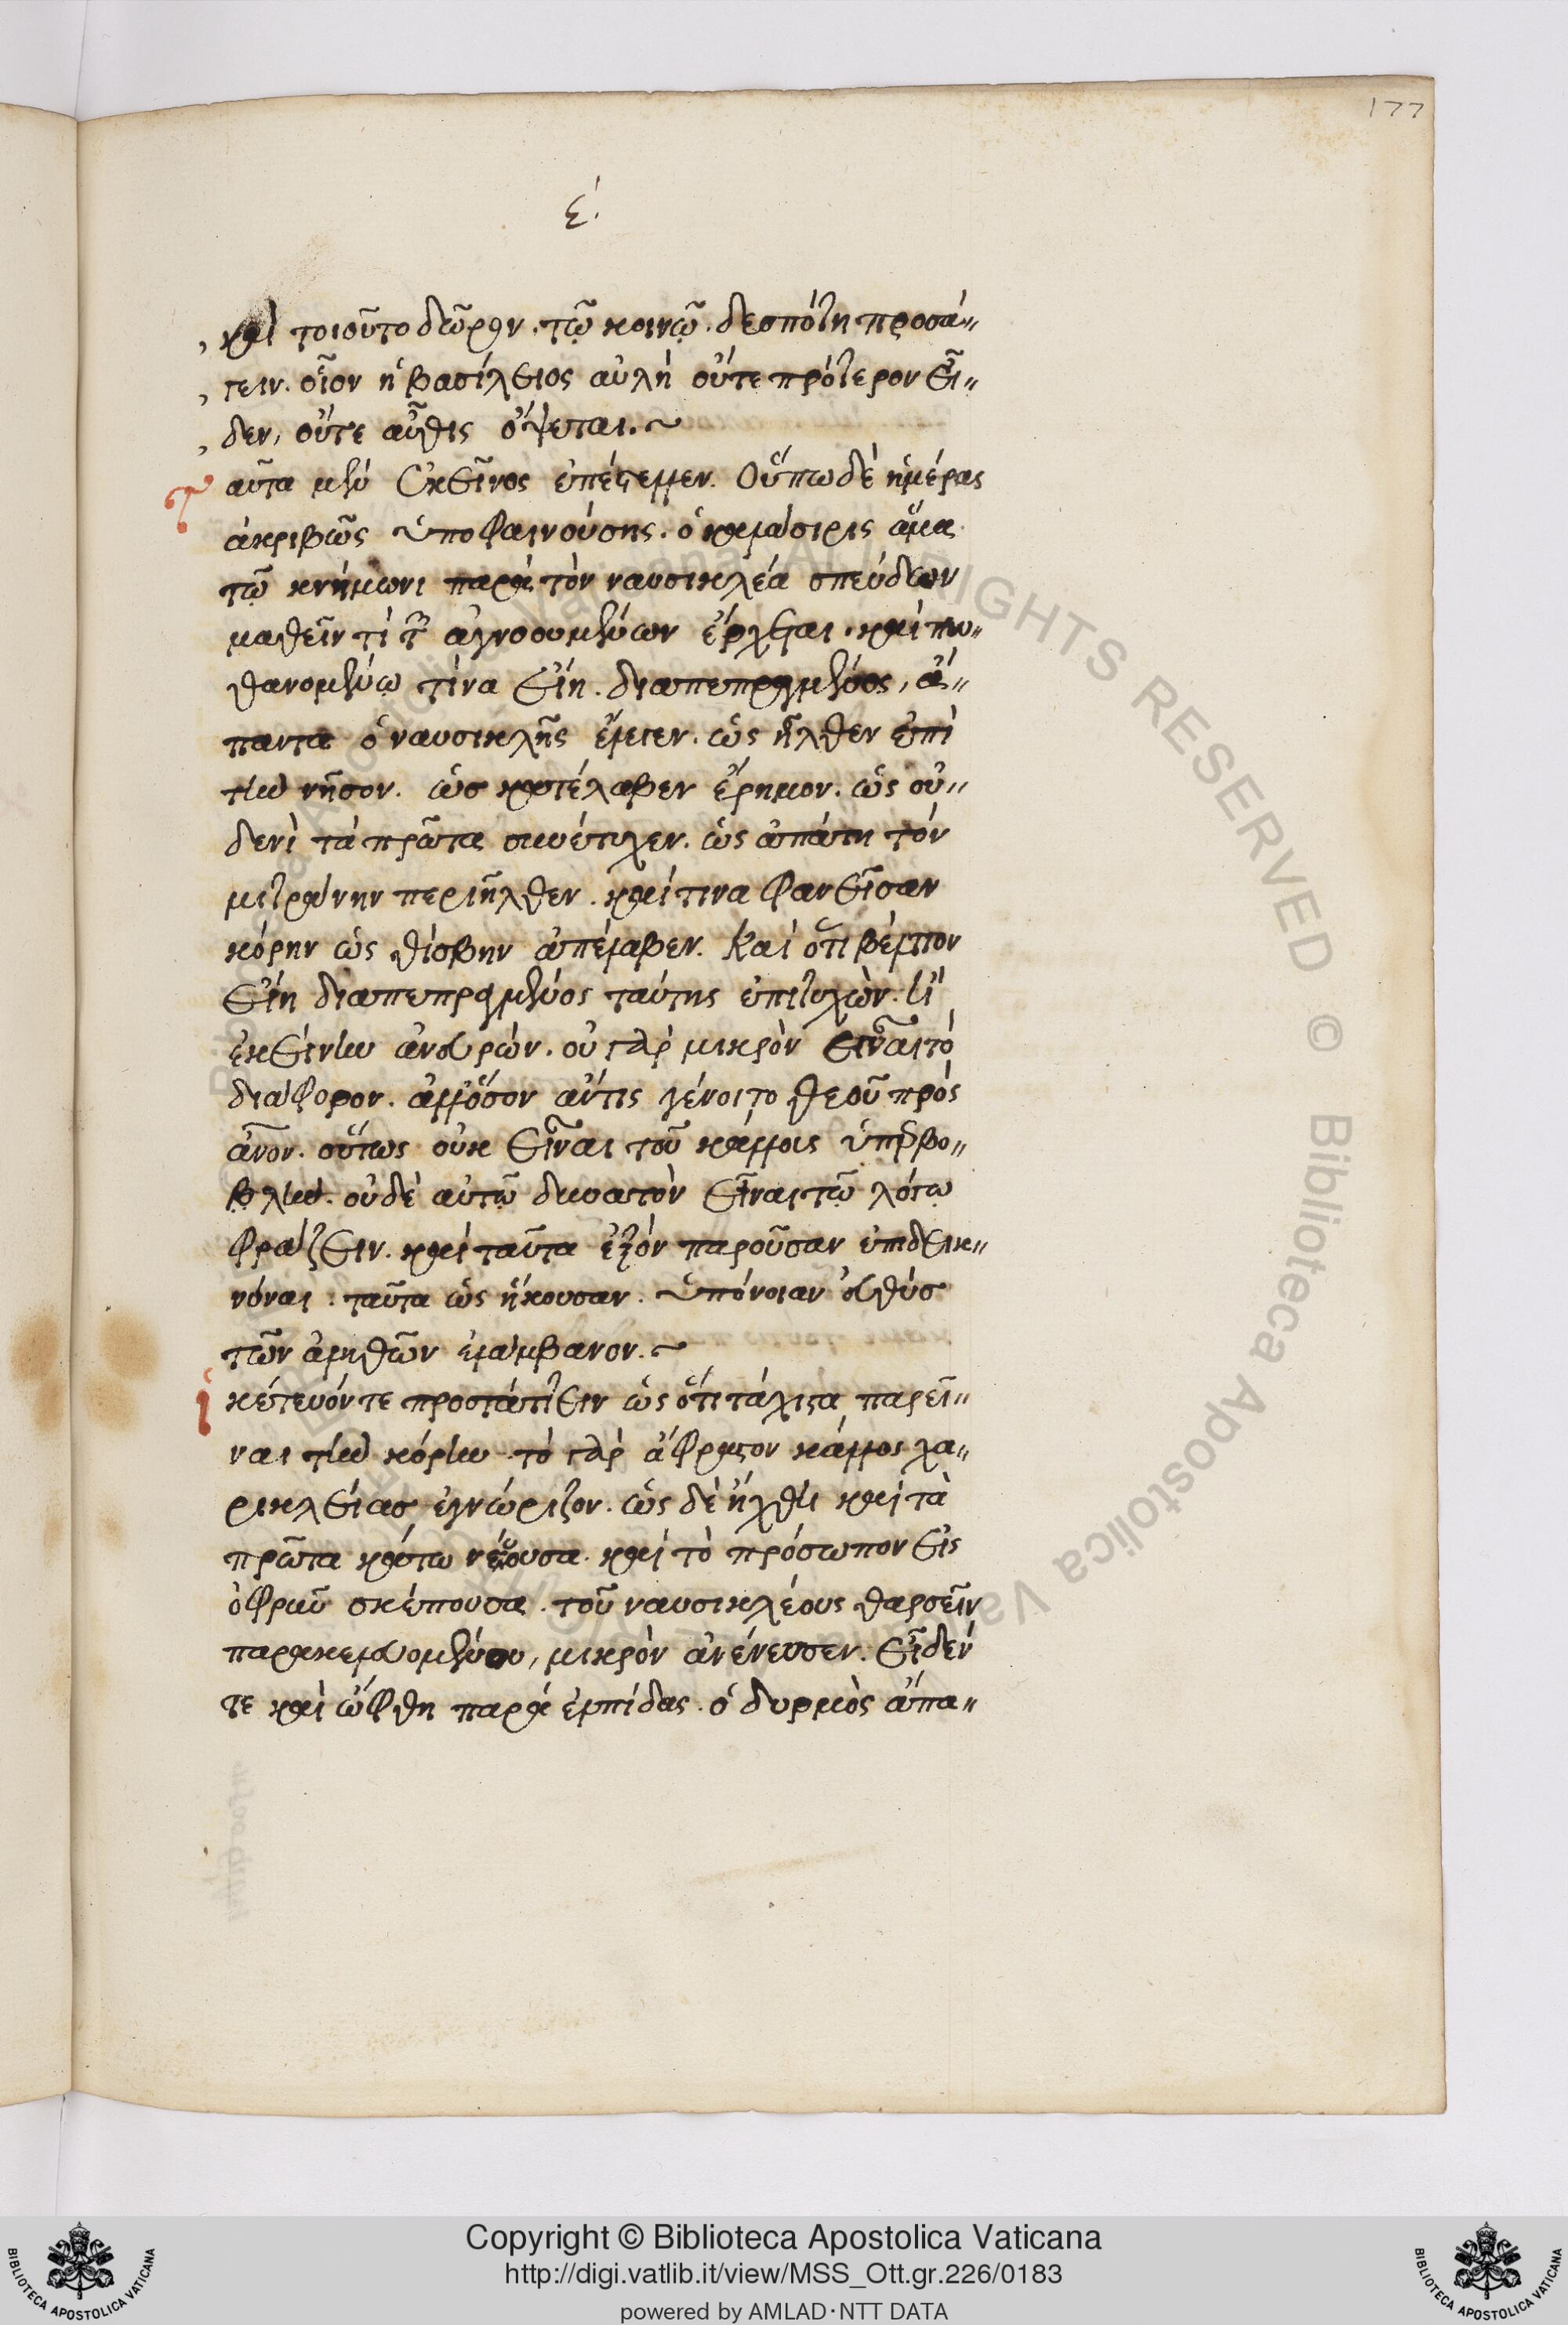 177
ε΄.
καὶ τοιοῦτο δῶρον. τῷ κοινῷ. δεσπότη προσά„
γειν. οἷον ἡ βασίλειος αὐλὴ οὔτε πρότερον εἶ„
δεν, οὔτε αὖθις ὄψεται. ~
Ταῦτα μὲν ἐκεῖνος ἐπέστελλεν. Οὔπω δὲ ἡμέρας
ἀκριβῶς ὑποφαινούσης. ὁ καλάσιρις ἅμα
τῷ κνήμωνι παρὰ τὸν ναυσικλέα σπεύδων
μαθεῖν τί τῶν ἀγνοουμένων ἔρχεται. καὶ πυ„
θανομένω τίνα εἴη. διαπεπραγμένος, ἅ„
παντα ὁ ναυσικλῆς ἔλεγεν. ὡς ἦλθεν ἐπὶ
τὴν νῆσον. ὡς κατέλαβεν ἔρημον. ὡς οὐ„
δενὶ τὰ πρῶτα συνέτυχεν. ὡς ἀπάτη τὸν
μιτράνην περιῆλθεν. καί τινα φανεῖσαν
κόρην ὡς θίσβην ἀπέλαβεν. Καὶ ὅτι βέλτιον
εἴη διαπεπραγμένος ταύτης ἐπιτυχὼν. ἢ
ἐκείνην ἀνευρών. οὐ γὰρ μικρὸν εἶναι τὸ
διάφορον. ἀλλ' ὅσον ἄν τις γένοιτο θεοῦ πρὸς
ἄνον. οὕτως οὐκ εἶναι τοῦ κάλλους ὑπερβο„
βλὴν. οὐδὲ αὐτῷ δυνατὸν εἶναι τῷ λόγῳ
φράζειν. καὶ ταῦτα ἐξὸν παροῦσαν ἐπιδεικ„
νύναι. ταῦτα ὡς ἤκουσαν. ὑπόνοιαν εὐθὺς
τῶν ἀληθῶν ἐλάμβανον. ~
ἱκέτευόν τε προστάττειν ὡς ὅτι τάχιστα παρεῖ„
ναι τὴν κόρην. τὸ γὰρ ἄφραστον κάλλος χα„
ρικλείας ἐγνώριζον. ὡς δὲ ἤχθη καὶ τὰ
πρῶτα κάτω νεύουσα. καὶ τὸ πρόσωπον εἰς
ὀφρῦν σκέπουσα. τοῦ ναυσικλέους θαρσεῖν
παρακελευομένου, μικρὸν ἀνένευσεν. εἶδέν
τε καὶ ὤφθη παρὰ ἐλπίδας. ὀδυρμὸς ἅπα„
Copyright © Biblioteca Apostolica Vaticana
http://digi.vatlib.it/view/MSS_Ott.gr.226/0183
powered by AMLAD·NTT DATA